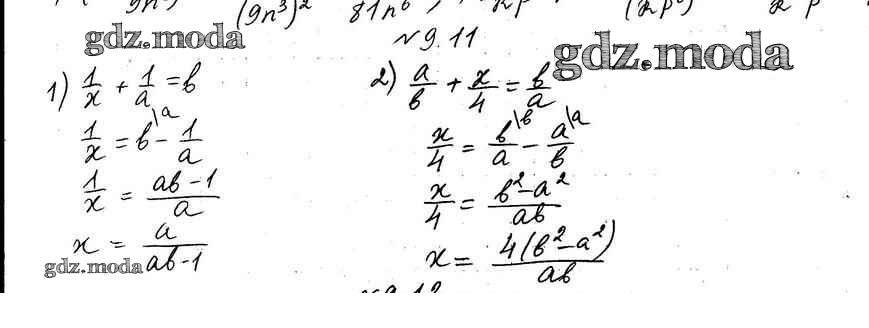 (9n³)² 81n⁶
gdz.moda
№9.11
gdz.moda
1) 1/x + 1/a = b
1/x = b\a - 1/a
1/x = ab-1/a
x = a/ab-1
gdz.moda
2) a/b + x/4 = b/a
x/4 = b\b/a - a\a/b
x/4 = b²-a²/ab
x = 4(b²-a²)/ab